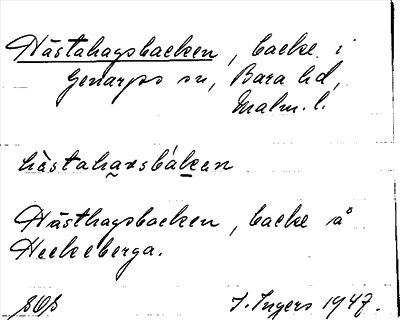 Hästahagsbacken, backe i
Genarps sn, Bara hd,
Malm. l.
hàstahaxsbákan
Hästhagsbacken, backe å
Heckeberga.
SOS I. Ingers 1947.